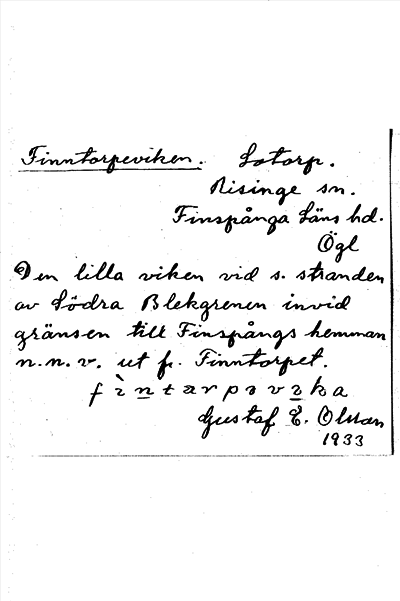 Finntorpeviken. Lotorp.
Risinge sn.
Finspånga läns hd.
Ögl
Den lilla viken vid s. stranden
av Södra Blekgrenen invid
gränsen till Finspångs hemman
n.n.v. ut fr. Finntorpet.
fìntarpəvika
Gustaf E. Olsson
1933